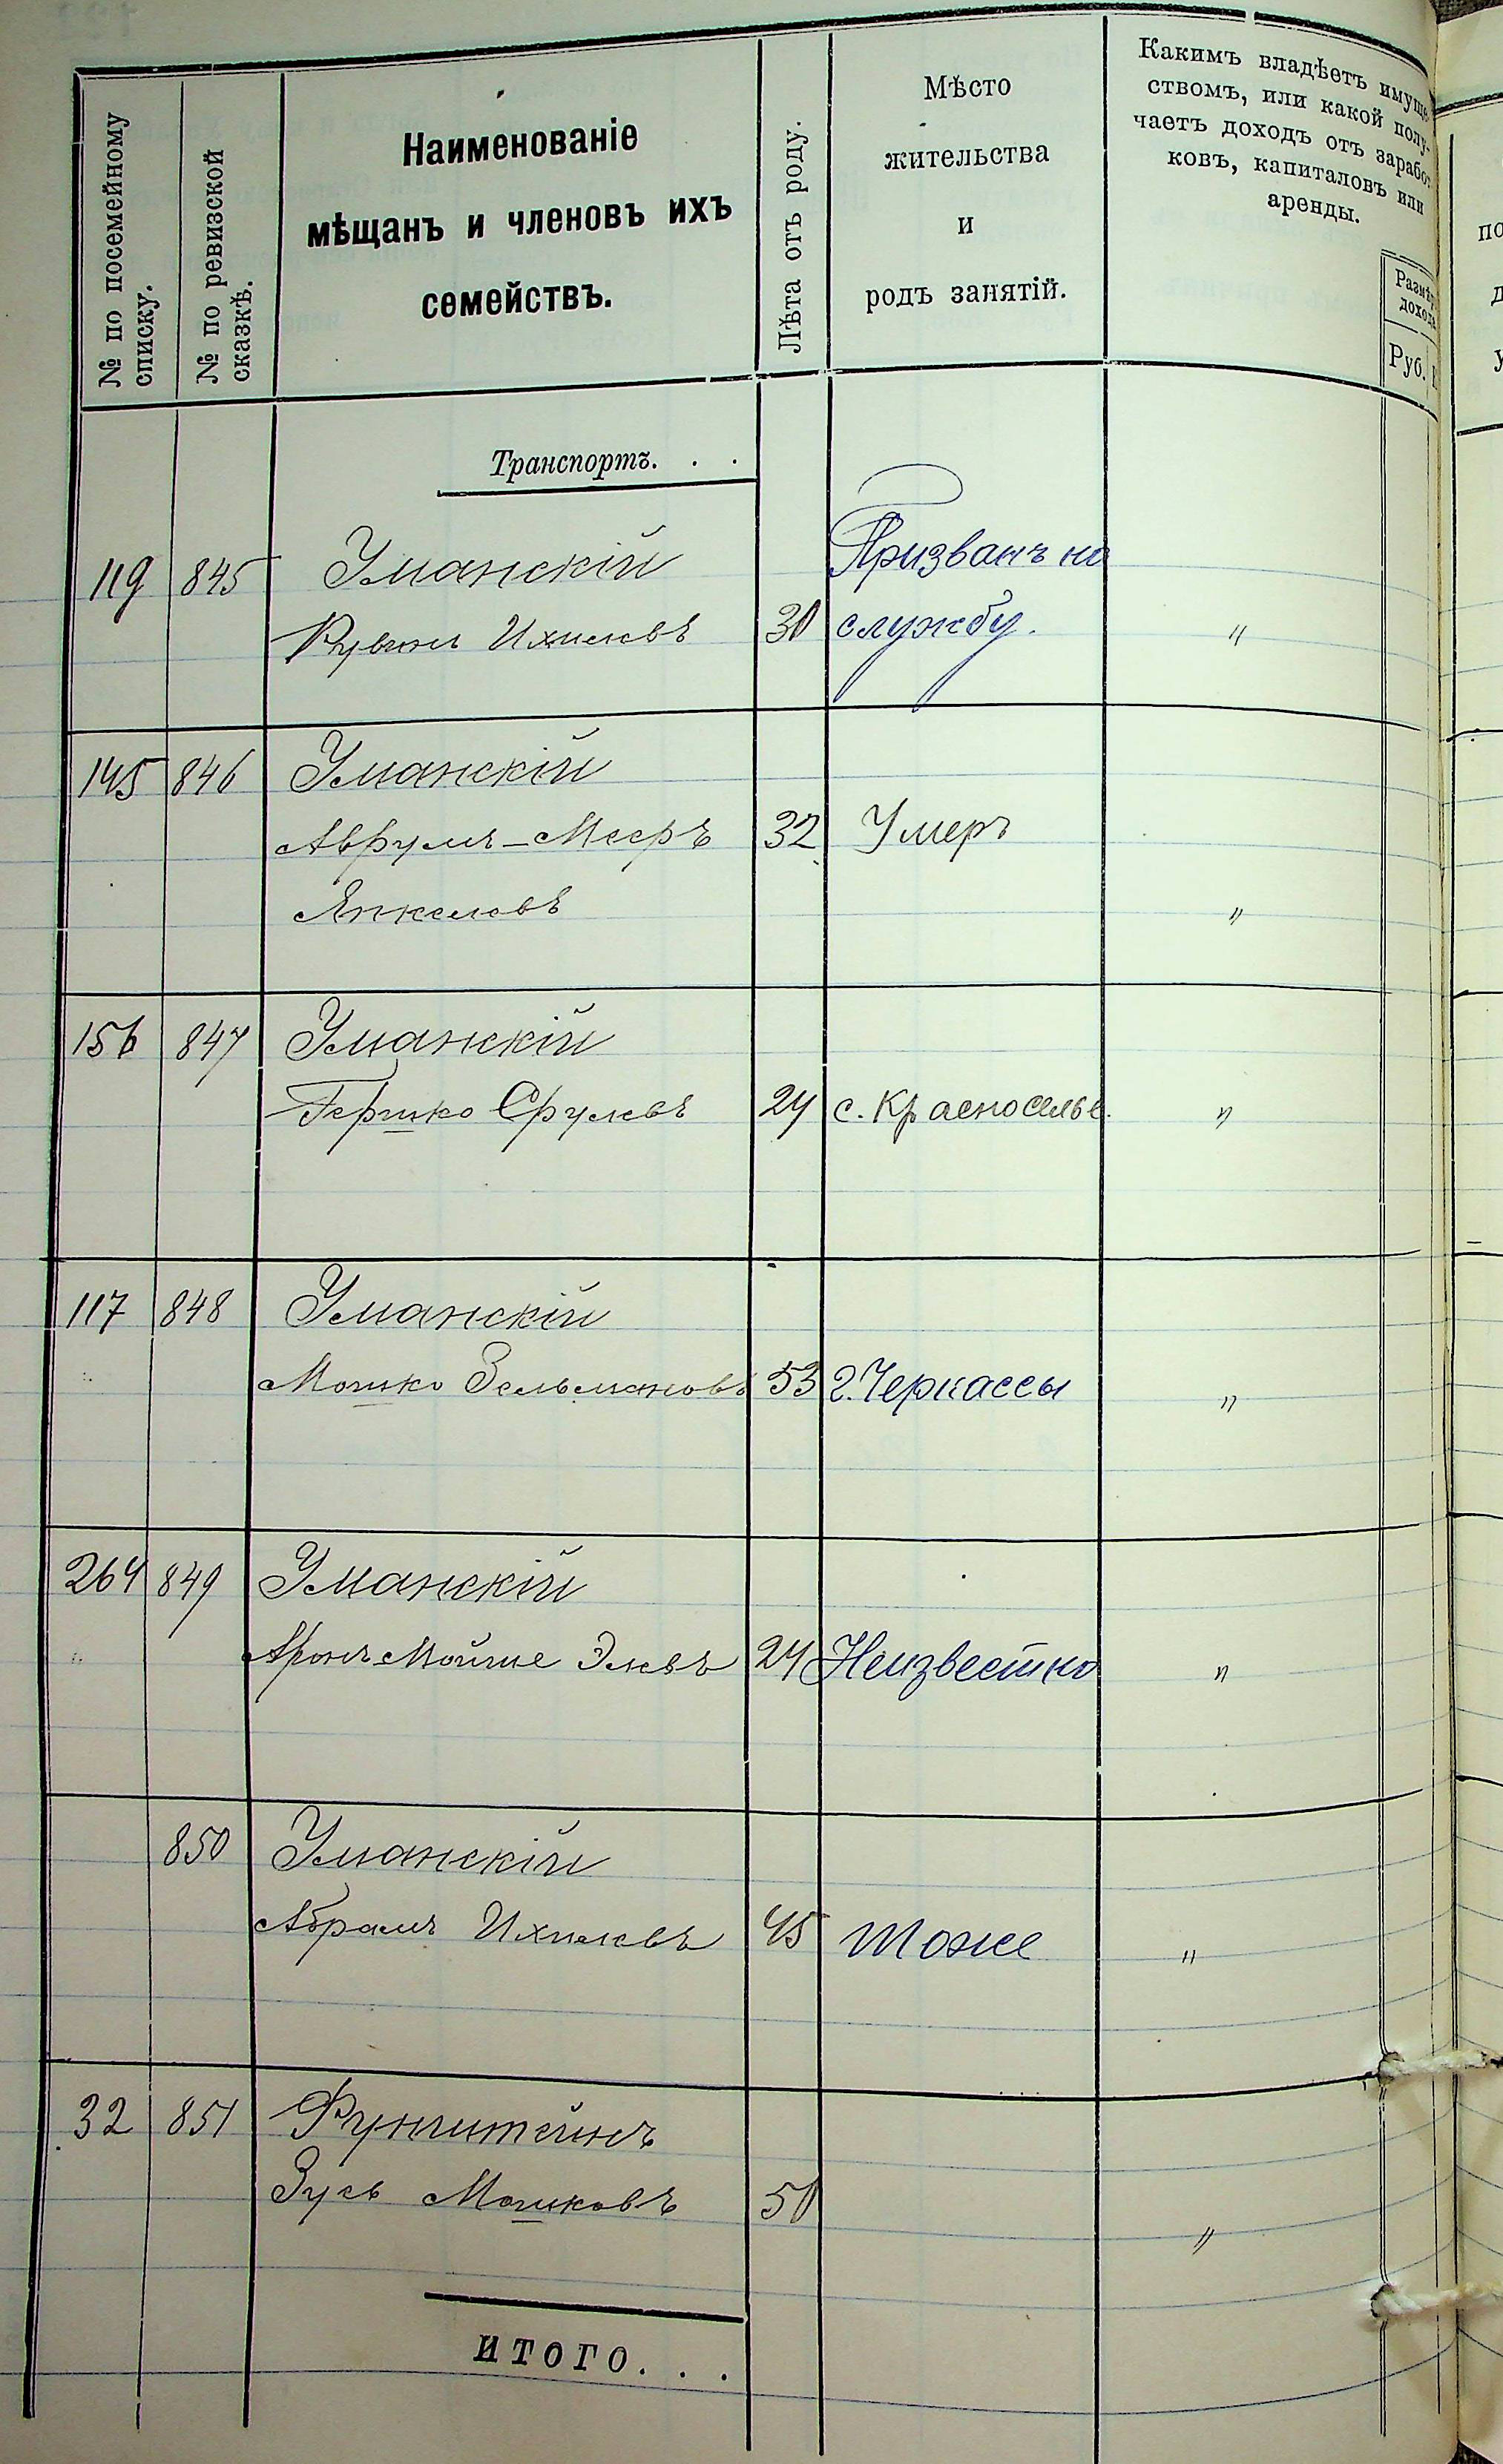 № по посемейному
списку.
№ по ревизской
сказкѣ.
Наименованіе
мѣщанъ и членовъ ихъ
семействъ.
Лѣта отъ роду.
Мѣсто
жительства
и
родъ занятій.
Какимъ владѣетъ имуще-
ствомъ, или какой полу-
чаетъ доходъ отъ заработ-
ковъ, капиталовъ или
аренды.
Размѣръ
дохода
Руб.
Транспортъ. . .
119 845 Уманскій Призванъ на
Рувинъ Ихилевъ 30 службу. "
145 846 Уманскій
Аврумъ-Мееръ 32 Умеръ
Янкелевъ "
156 847 Уманскій
Гершко Срулевъ 24 с. Красноселье. "
117 848 Уманскій
Мошко Зельмановъ 53 г. Черкассы "
264 849 Уманскій
Аронъ Мойше Элевъ 24 Неизвестно "
850 Уманскій
Абрамъ Ихилевъ 45 тоже "
32 851 Фунштейнъ
Зусь Мошковъ 50 "
ИТОГО. . .